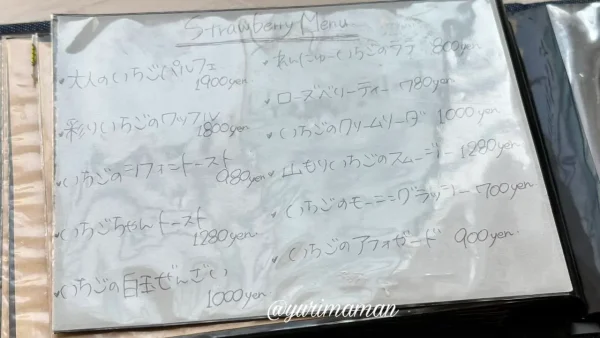 Strawberry Menu
・大人のいちごパルフェ
1900yen
・彩りいちごのワッフル
1800yen
・いちごのシフォントースト
980yen
・いちごちゃんトースト
1280yen
・いちごの白玉ぜんざい
1000yen
・いちごのラテ 800yen
・ローズベリーティー 780yen
・いちごのクリームソーダ 1000yen
・山もりいちごのスムージー 1280yen
・いちごのモーニングラッシー 700yen
・いちごのアフォガード 900yen
@yurimaman